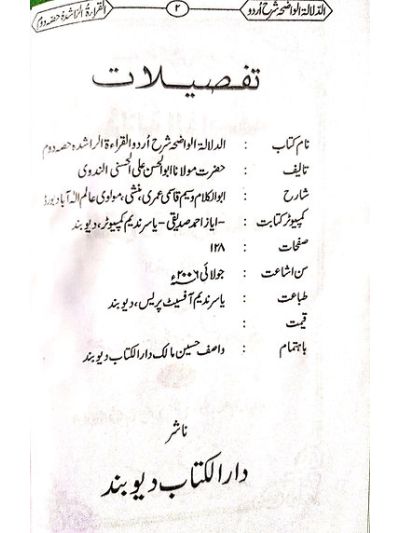 الدلالۃ الواضحہ شرح اُردو ۲ القراءۃ الراشدہ حصہ دوم
تفصیلات
نام کتاب : الدلالۃ الواضحہ شرح اُردو القراءۃ الراشدہ حصہ دوم
تالیف : حضرت مولانا ابوالحسن علی الحسنی الندوی
شارح : ابوالکلام وسیم قاسمی عمری، منشی، مولوی عالم الٰہ آباد بورڈ
کمپیوٹر کتابت : ایاز احمد صدیقی - یاسر ندیم کمپیوٹر، دیوبند
صفحات : ۱۲۸
سن اشاعت : جولائی ۲۰۰۶ء
طباعت : یاسر ندیم آفسیٹ پریس، دیوبند
قیمت :
باہتمام : واصف حسین مالک دارالکتاب دیوبند
ناشر
دارالکتاب دیوبند